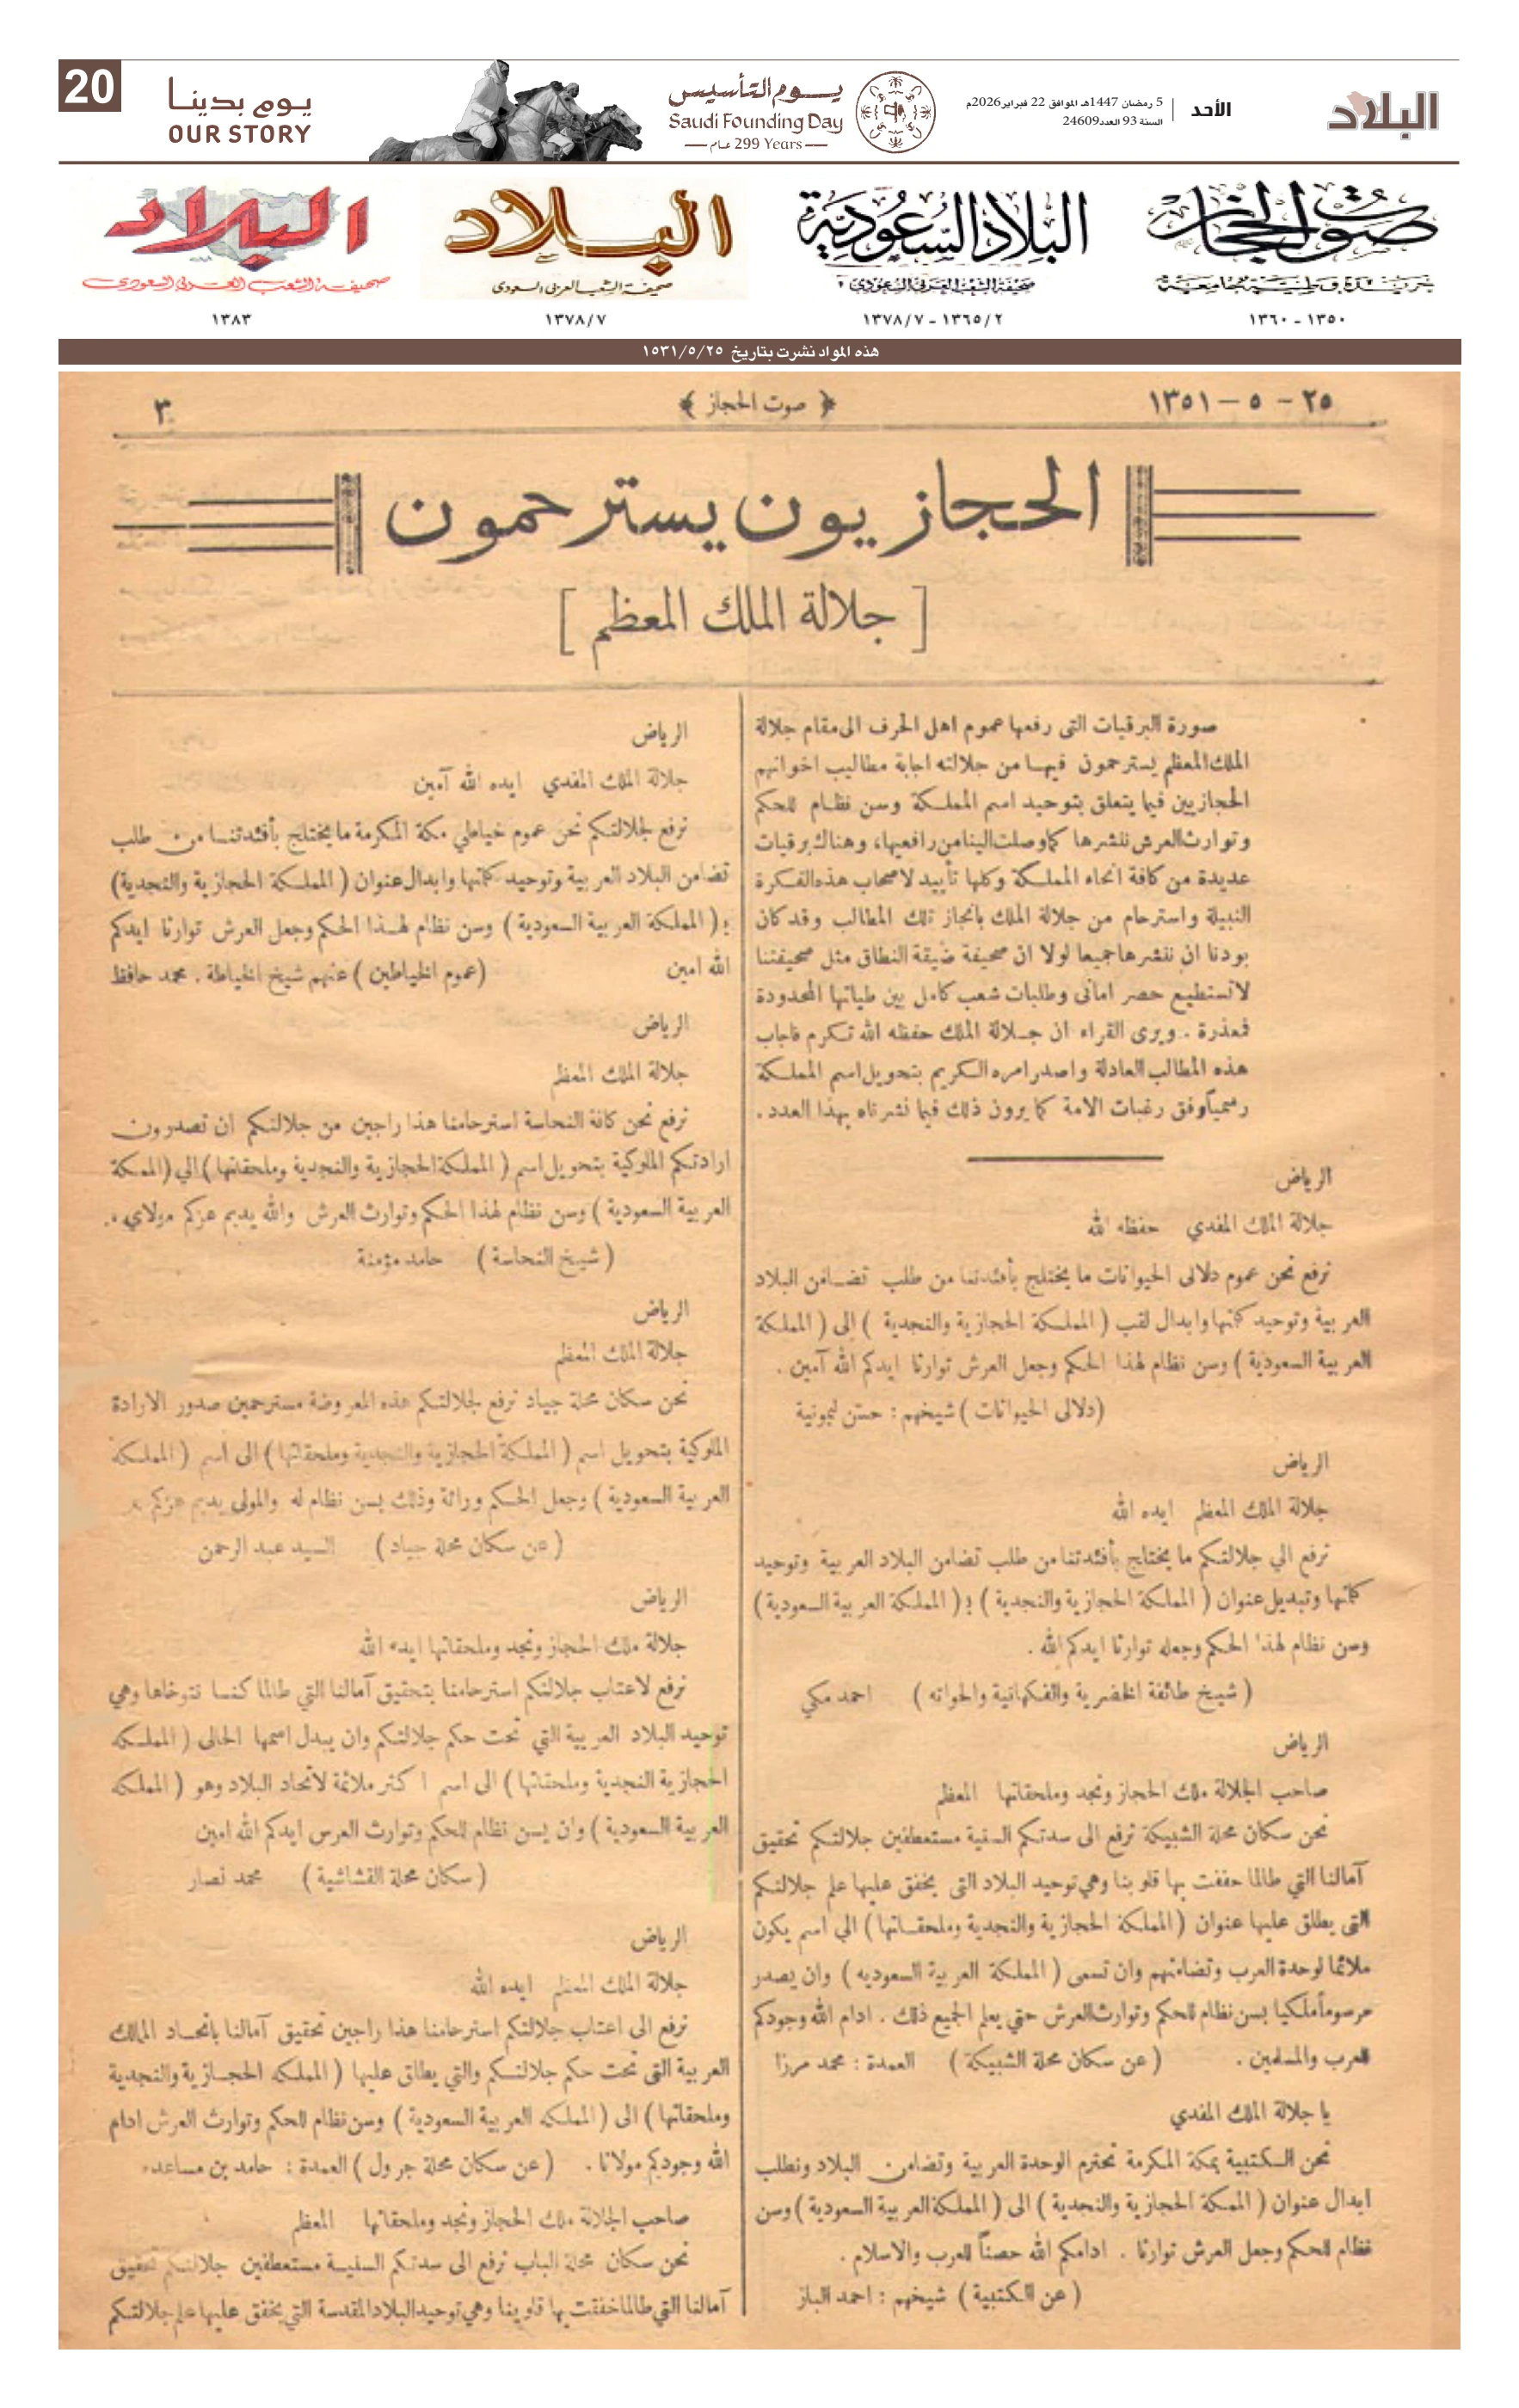 البلاد
الأحد
5 رمضان 1447هـ الموافق 22 فبراير 2026م
السنة 93 العدد 24609
يوم التأسيس
Saudi Founding Day
299 Years عـام
يوم بدينا
OUR STORY
20
صوت الحجاز
جريدة وطنية جامعة
١٣٥٠ - ١٣٦٠
البلاد السعودية
صحيفة الشعب العربي السعودي
١٣٦٥/٢ - ١٣٧٨/٧
البلاد
صحيفة الشعب العربي السعودي
١٣٧٨/٧
البلاد
صحيفة الشعب العربي السعودي
١٣٨٣
هذه المواد نشرت بتاريخ ١٥٣١/٥/٢٥
٢٥ - ٥ - ١٣٥١
﴿ صوت الحجاز ﴾
٣
الحجازيون يسترحمون
[ جلالة الملك المعظم ]
صورة البرقيات التى رفعها عموم اهل الحرف الى مقام جلالة
الملك المعظم يسترحمون فيها من جلالته اجابة مطاليب اخوانهم
الحجازيين فيما يتعلق بتوحيد اسم المملكة وسن نظام للحكم
وتوارث العرش ننشرها كما وصلت الينا من رافعيها، وهناك برقيات
عديدة من كافة انحاء المملكة وكلها تأييد لاصحاب هذه الفكرة
النبيلة واسترحام من جلالة الملك بانجاز تلك المطالب وقد كان
بودنا ان ننشرها جميعا لولا ان صحيفة ضيقة النطاق مثل صحيفتنا
لا تستطيع حصر امانى وطلبات شعب كامل بين طياتها المحدودة
فمعذرة . ويرى القراء ان جلالة الملك حفظه الله تكرم فاجاب
هذه المطالب العادلة واصدر امره الكريم بتحويل اسم المملكة
رسمياً وفق رغبات الامة كما يرون ذلك فيما نشرناه بهذا العدد .
الرياض
جلالة الملك المفدي حفظه الله
نرفع نحن عموم دلالى الحيوانات ما يختلج بأفئدتنا من طلب تضامن البلاد
العربية وتوحيد كلمتها وابدال لقب ( المملكة الحجازية والنجدية ) إلى ( المملكة
العربية السعودية ) وسن نظام لهذا الحكم وجعل العرش توارثا ايدكم الله آمين .
(دلالى الحيوانات ) شيخهم : حسن ليمونية
الرياض
جلالة الملك المعظم ايده الله
نرفع الي جلالتكم ما يختلج بأفئدتنا من طلب تضامن البلاد العربية وتوحيد
كلمتها وتبديل عنوان ( المملكة الحجازية والنجدية ) بـ ( المملكة العربية السعودية )
وسن نظام لهذا الحكم وجعله توارثا ايدكم الله .
( شيخ طائفة الخضرية والفكهانية والحواته ) احمد مكي
الرياض
صاحب الجلالة ملك الحجاز ونجد وملحقاتها المعظم
نحن سكان محلة الشبيكة نرفع الى سدتكم السنية مستعطفين جلالتكم تحقيق
آمالنا التي طالما حففت بها قلوبنا وهي توحيد البلاد التى يخفق عليها علم جلالتكم
التى يطلق عليها عنوان ( المملكة الحجازية والنجدية وملحقـاتها ) الي اسم يكون
ملائما لوحدة العرب وتضامنهم وان تسمى ( المملكة العربية السعوديه ) وان يصدر
مرسوماً ملكيا بسن نظام للحكم وتوارث العرش حتي يعلم الجميع ذلك . ادام الله وجودكم
للعرب والمسلمين . ( عن سكان محلة الشبيكة ) العمدة : محمد مرزا
يا جلالة الملك المفدي
نحن الكتبية بمكة المكرمة نحترم الوحدة العربية وتضامن البلاد ونطلب
ابدال عنوان ( الممكة الحجازية والنجدية ) الى ( المملكة العربية السعودية ) وسن
نظام للحكم وجعل العرش توارثا . ادامكم الله حصناً للعرب والاسلام .
( عن الكتبية ) شيخهم : احمد الباز
الرياض
جلالة الملك المفدي ايده الله آمين
نرفع لجلالتكم نحن عموم خياطي مكة المكرمة ما يختلج بأفئدتنا من طلب
تضامن البلاد العربية وتوحيد كلمتها وابدال عنوان ( المملكة الحجازية والنجدية)
بـ ( المملكة العربية السعودية ) وسن نظام لهذا الحكم وجعل العرش توارثا ايدكم
الله امين (عموم الخياطين ) عنهم شيخ الخياطة . محمد حافظ
الرياض
جلالة الملك المعظم
نرفع نحن كافة النحاسة استرحامنا هذا راجين من جلالتكم ان تصدرون
ارادتكم الملوكية بتحويل اسم ( المملكة الحجازية والنجدية وملحقاتها ) الي ( الممكة
العربية السعودية ) وسن نظام لهذا الحكم وتوارث العرش والله يديم عزكم مولاي .
( شيخ النحاسة ) حامد مؤمنة
الرياض
جلالة الملك المعظم
نحن سكان محلة جياد نرفع لجلالتكم هذه المعروضة مسترحمين صدور الارادة
الملوكية بتحويل اسم ( المملكة الحجازية والنجدية وملحقاتها ) الى اسم ( المملكة
العربية السعودية ) وجعل الحكم وراثة وذلك بسن نظام له والمولى يديم عزكم
( عن سكان محلة جياد ) السيد عبد الرحمن
الرياض
جلالة ملك الحجاز ونجد وملحقاتها ايده الله
نرفع لاعتاب جلالتكم استرحامنا بتحقيق آمالنا التي طالما كنا نتوخاها وهي
توحيد البلاد العربية التي تحت حكم جلالتكم وان يبدل اسمها الحالى ( المملكه
الحجازية النجدية وملحقاتها ) الى اسم اكثر ملائمة لاتحاد البلاد وهو ( المملكه
العربية السعودية ) وان يسن نظام للحكم وتوارث العرس ايدكم الله امين
( سكان محلة القشاشية ) محمد نصار
الرياض
جلالة الملك المعظم ايده الله
نرفع الى اعتاب جلالتكم استرحامنا هذا راجين تحقيق آمالنا باتحاد المالك
العربية التى تحت حكم جلالتكم والتي يطلق عليها ( المملكه الحجازية والنجدية
وملحقاتها ) الى ( المملكه العربية السعودية ) وسن نظام للحكم وتوارث العرش ادام
الله وجودكم مولانا . ( عن سكان محلة جرول ) العمدة : حامد بن مساعد
صاحب الجلالة ملك الحجاز ونجد وملحقاتها المعظم
نحن سكان محلة الباب نرفع الى سدتكم السنية مستعطفين جلالتكم تحقيق
آمالنا التي طالما خفقت بها قلوبنا وهي توحيد البلاد المقدسة التي يخفق عليها علم جلالتكم